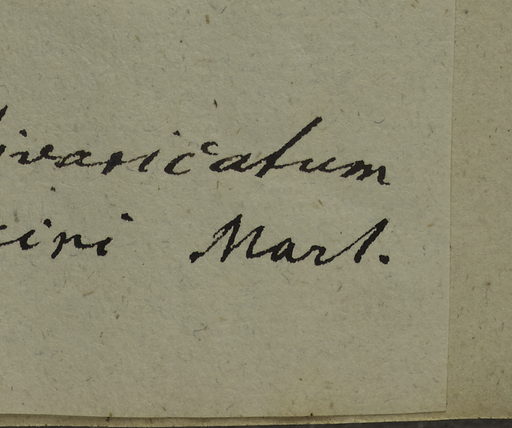 divaricatum
cini Mart.